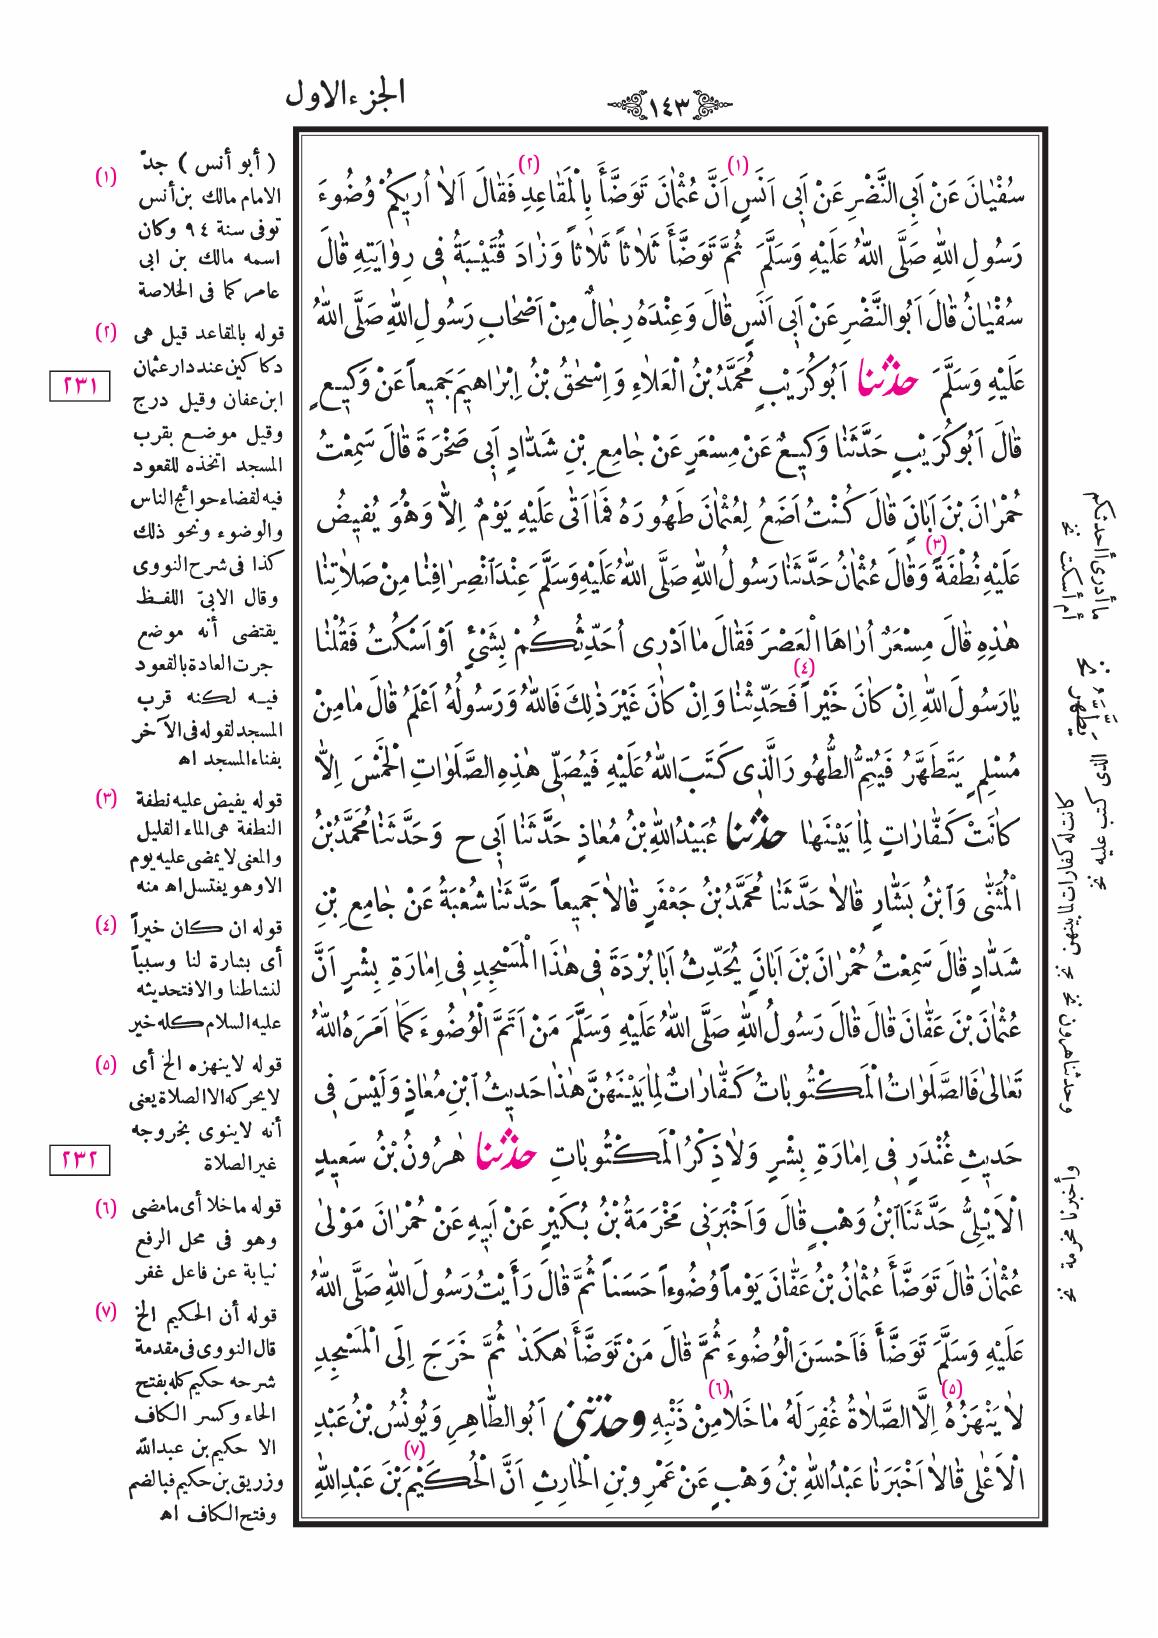 الجزء الاول
١٤٣
سُفْيٰانَ عَنْ اَبِى النَّضْرِ عَنْ اَبِى اَنَسٍ (١) اَنَّ عُثْمٰانَ تَوَضَّأَ بِالْمَقٰاعِدِ (٢) فَقٰالَ اَلاٰ اُرِيكُمْ وُضُوءَ
رَسُولِ اللهِ صَلَّى اللهُ عَلَيْهِ وَسَلَّمَ ثُمَّ تَوَضَّأَ ثَلاٰثاً ثَلاٰثاً وَزٰادَ قُتَيْبَةُ فِى رِوٰايَتِهِ قٰالَ
سُفْيٰانُ قٰالَ اَبُو النَّضْرِ عَنْ اَبِى اَنَسٍ قٰالَ وَعِنْدَهُ رِجٰالٌ مِنْ اَصْحٰابِ رَسُولِ اللهِ صَلَّى اللهُ
عَلَيْهِ وَسَلَّمَ حدثنا اَبُو كُرَيْبٍ مُحَمَّدُ بْنُ الْعَلاٰءِ وَ اِسْحٰقُ بْنُ اِبْرٰاهِيمَ جَمِيعاً عَنْ وَكِيعٍ
قٰالَ اَبُو كُرَيْبٍ حَدَّثَنٰا وَكِيعٌ عَنْ مِسْعَرٍ عَنْ جٰامِعِ بْنِ شَدّٰادٍ اَبِى صَخْرَةَ قٰالَ سَمِعْتُ
حُمْرٰانَ بْنَ اَبٰانَ قٰالَ كُنْتُ اَضَعُ لِعُثْمٰانَ طَهُورَهُ فَمٰا اَتٰى عَلَيْهِ يَوْمٌ اِلاّٰ وَهُوَ يُفِيضُ
عَلَيْهِ نُطْفَةً (٣) وَقٰالَ عُثْمٰانُ حَدَّثَنٰا رَسُولُ اللهِ صَلَّى اللهُ عَلَيْهِ وَسَلَّمَ عِنْدَ ٱنْصِرٰافِنٰا مِنْ صَلاٰتِنٰا
هٰذِهِ قٰالَ مِسْعَرٌ اُرٰاهَا الْعَصْرَ فَقٰالَ مٰا اَدْرِى اُحَدِّثُكُمْ بِشَىْءٍ اَوْ اَسْكُتُ فَقُلْنٰا
يٰا رَسُولَ اللهِ اِنْ كٰانَ خَيْراً (٤) فَحَدِّثْنٰا وَ اِنْ كٰانَ غَيْرَ ذٰلِكَ فَاللهُ وَرَسُولُهُ اَعْلَمُ قٰالَ مٰا مِنْ
مُسْلِمٍ يَتَطَهَّرُ فَيُتِمُّ الطُّهُورَ الَّذِى كَتَبَ اللهُ عَلَيْهِ فَيُصَلِّى هٰذِهِ الصَّلَوٰاتِ الْخَمْسَ اِلاّٰ
كٰانَتْ كَفّٰارٰاتٍ لِمٰا بَيْنَهٰا حدثنا عُبَيْدُ اللهِ بْنُ مُعٰاذٍ حَدَّثَنٰا اَبِى ح وَحَدَّثَنٰا مُحَمَّدُ بْنُ
الْمُثَنّٰى وَٱبْنُ بَشّٰارٍ قٰالاٰ حَدَّثَنٰا مُحَمَّدُ بْنُ جَعْفَرٍ قٰالاٰ جَمِيعاً حَدَّثَنٰا شُعْبَةُ عَنْ جٰامِعِ بْنِ
شَدّٰادٍ قٰالَ سَمِعْتُ حُمْرٰانَ بْنَ اَبٰانَ يُحَدِّثُ اَبٰا بُرْدَةَ فِى هٰذَا الْمَسْجِدِ فِى اِمٰارَةِ بِشْرٍ اَنَّ
عُثْمٰانَ بْنَ عَفّٰانَ قٰالَ قٰالَ رَسُولُ اللهِ صَلَّى اللهُ عَلَيْهِ وَسَلَّمَ مَنْ اَتَمَّ الْوُضُوءَ كَمٰا اَمَرَهُ اللهُ
تَعٰالىٰ فَالصَّلَوٰاتُ الْمَكْتُوبٰاتُ كَفّٰارٰاتٌ لِمٰا بَيْنَهُنَّ هٰذٰا حَدِيثُ ٱبْنِ مُعٰاذٍ وَلَيْسَ فِى
حَدِيثِ غُنْدَرٍ فِى اِمٰارَةِ بِشْرٍ وَلاٰ ذِكْرُ الْمَكْتُوبٰاتِ حدثنا هٰرُونُ بْنُ سَعِيدٍ
الْاَيْلِىُّ حَدَّثَنَا ٱبْنُ وَهْبٍ قٰالَ وَاَخْبَرَنِى مَخْرَمَةُ بْنُ بُكَيْرٍ عَنْ اَبِيهِ عَنْ حُمْرٰانَ مَوْلىٰ
عُثْمٰانَ قٰالَ تَوَضَّأَ عُثْمٰانُ بْنُ عَفّٰانَ يَوْماً وُضُوءاً حَسَناً ثُمَّ قٰالَ رَأَيْتُ رَسُولَ اللهِ صَلَّى اللهُ
عَلَيْهِ وَسَلَّمَ تَوَضَّأَ فَاَحْسَنَ الْوُضُوءَ ثُمَّ قٰالَ مَنْ تَوَضَّأَ هٰكَذٰا ثُمَّ خَرَجَ اِلَى الْمَسْجِدِ
لاٰ يَنْهَزُهُ (٥) اِلَّا الصَّلاٰةُ غُفِرَ لَهُ مٰا خَلاٰ (٦) مِنْ ذَنْبِهِ وحدثنى اَبُو الطّٰاهِرِ وَيُونُسُ بْنُ عَبْدِ
الْاَعْلٰى قٰالاٰ اَخْبَرَنٰا عَبْدُ اللهِ بْنُ وَهْبٍ عَنْ عَمْرِو بْنِ الْحٰارِثِ اَنَّ الْحُكَيْمَ (٧) بْنَ عَبْدِ اللهِ
ما أدرى أأحدثكم
أم أسكت نخ
يطهر نخ
الذى كتب عليه نخ
كانت له كفارات لما بينهن نخ
وحدثنا هرون نخ
وأخبرنا مخرمة نخ
(١) ( أبو أنس ) جدّ
الامام مالك بن أنس
توفى سنة ٩٤ وكان
اسمه مالك بن ابى
عامر كما فى الخلاصة
(٢) قوله بالمقاعد قيل هى
دكاكين عند دار عثمان
٢٣١
ابن عفان وقيل درج
وقيل موضع بقرب
المسجد اتخذه للقعود
فيه لقضاء حوائج الناس
والوضوء ونحو ذلك
كذا فى شرح النووى
وقال الابىّ اللفظ
يقتضى أنه موضع
جرت العادة بالقعود
فيه لكنه قرب
المسجد لقوله فى الآخر
بفناء المسجد اه
(٣) قوله يفيض عليه نطفة
النطفة هى الماء القليل
والمعنى لا يمضى عليه يوم
الا وهو يغتسل اه منه
(٤) قوله ان كان خيراً
أى بشارة لنا وسبباً
لنشاطنا والا فتحديثه
عليه السلام كله خير
(٥) قوله لا ينهزه الخ أى
لا يحركه الا الصلاة يعنى
أنه لا ينوى بخروجه
٢٣٢
غير الصلاة
(٦) قوله ما خلا أى ما مضى
وهو فى محل الرفع
نيابة عن فاعل غفر
(٧) قوله أن الحكيم الخ
قال النووى فى مقدمة
شرحه حكيم كله بفتح
الحاء وكسر الكاف
الا حكيم بن عبدالله
وزريق بن حكيم فبالضم
وفتح الكاف اه